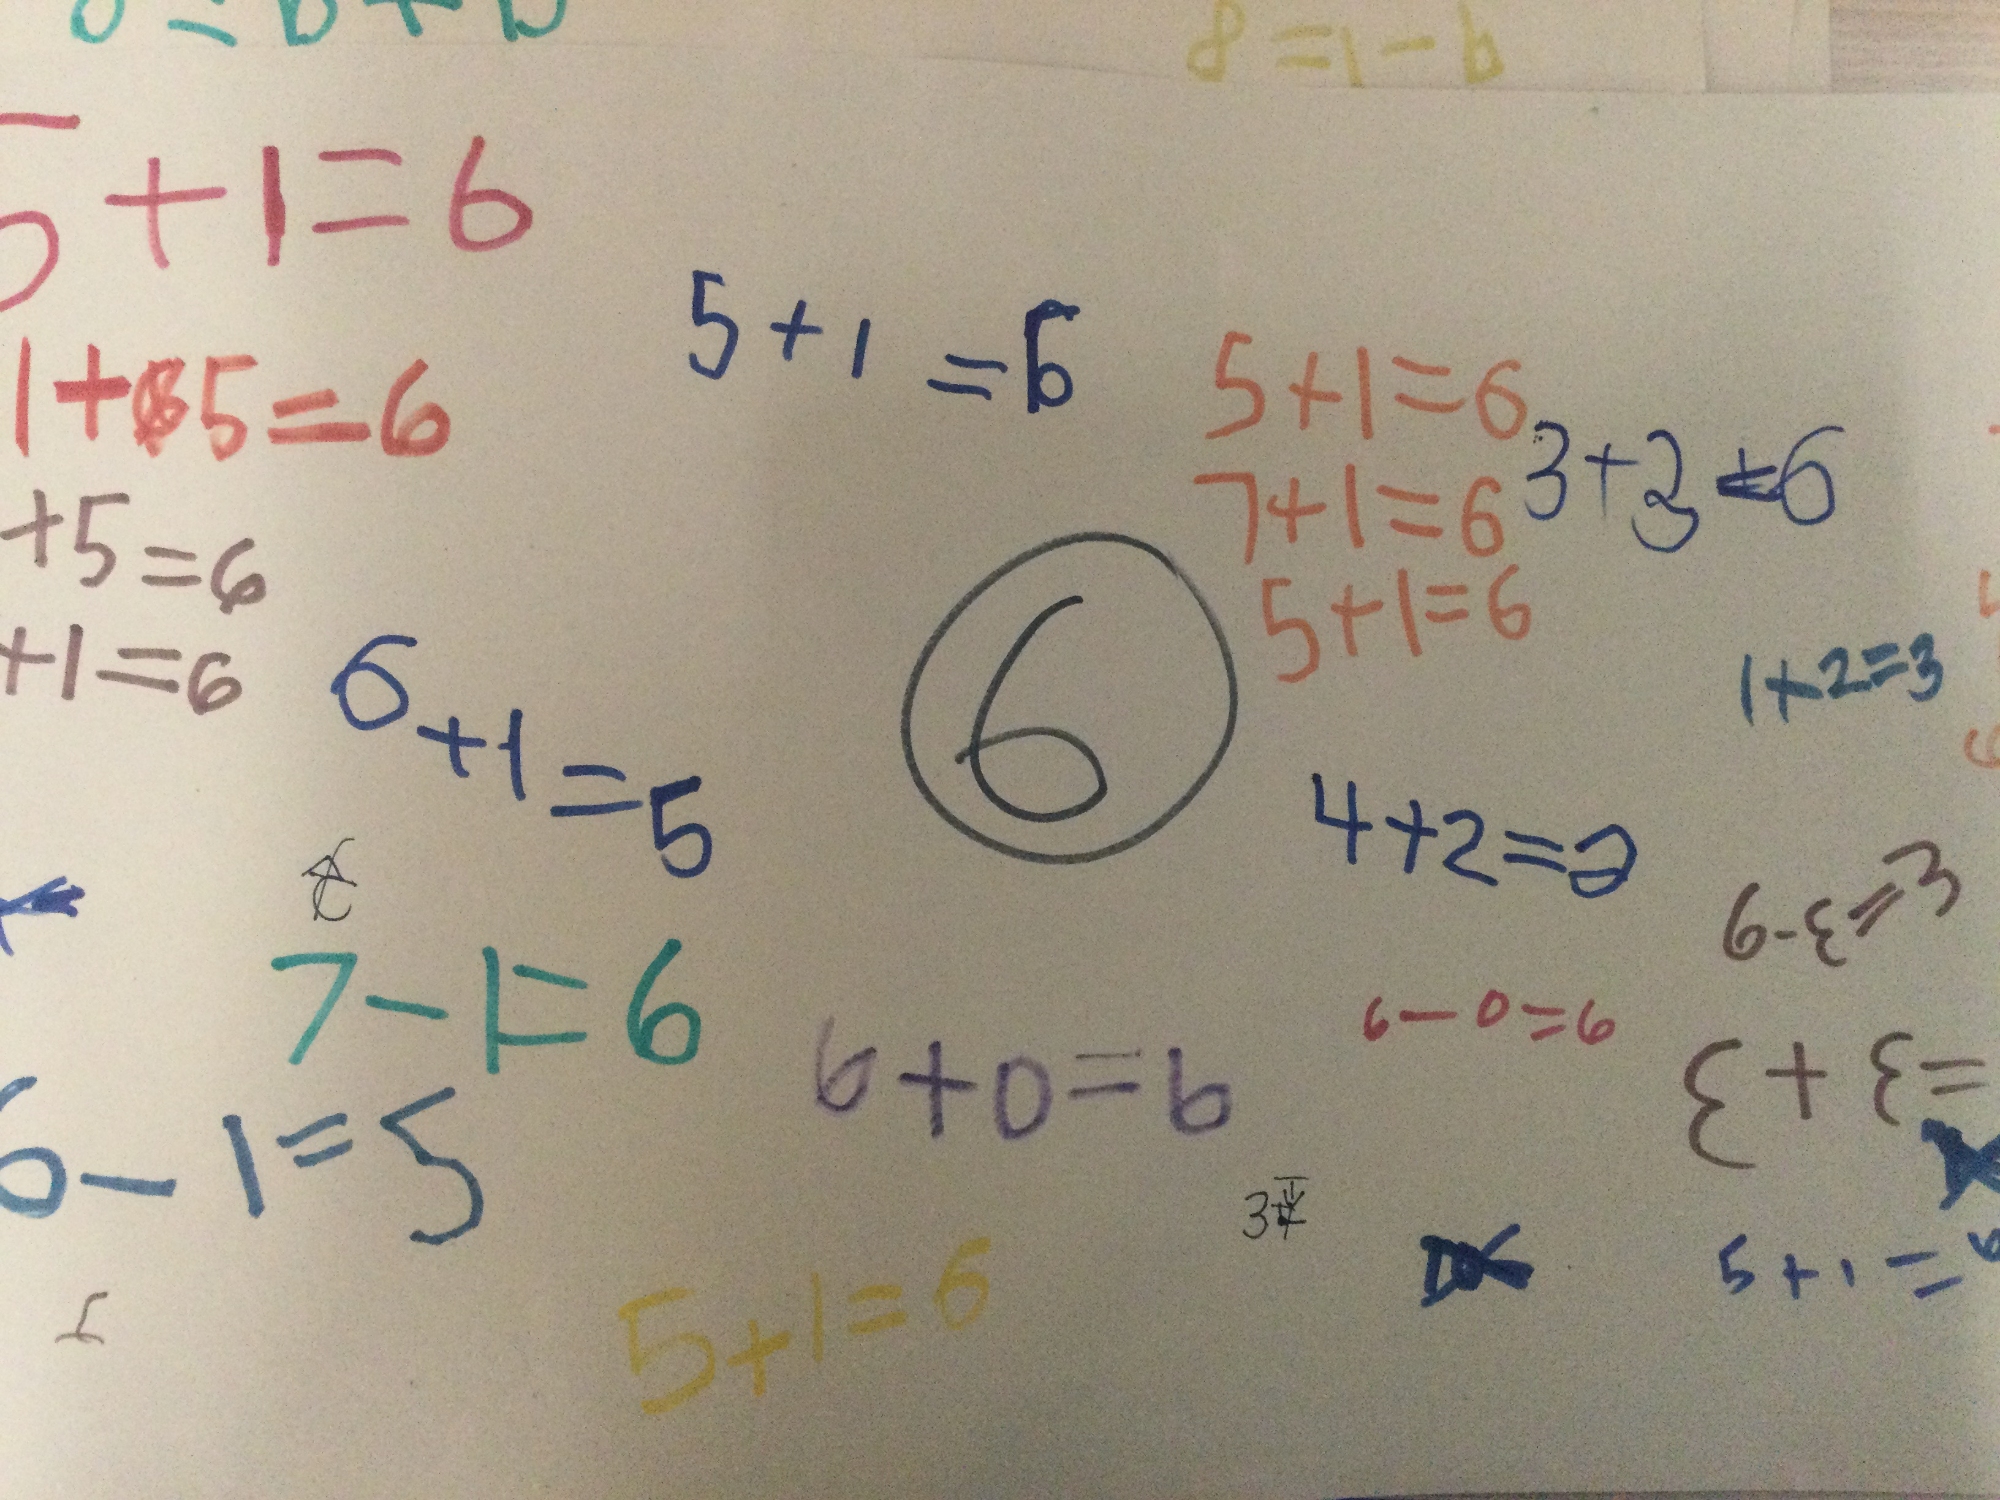 8 = 1 - 6
5 + 1 = 6
5 + 1 = 6
1 + 5 = 6
5 + 1 = 6
3 + 3 = 6
7 + 1 = 6
+ 5 = 6
5 + 1 = 6
+ 1 = 6
6 + 1 = 5
6
1 + 2 = 3
4 + 2 = 2
6 - 3 = 3
7 - 1 = 6
6 - 0 = 6
6 + 0 = 6
3 + 3 =
6 - 1 = 5
3
5 + 1 =
5 + 1 = 6